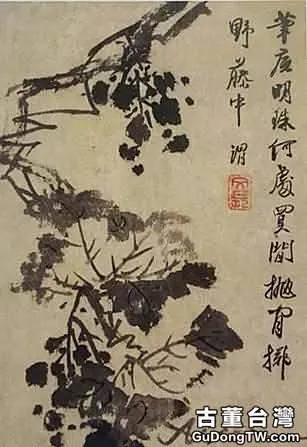 筆底明珠何處買閒拋閒擲
野藤中 渭
古董台灣
GuDongTW.com